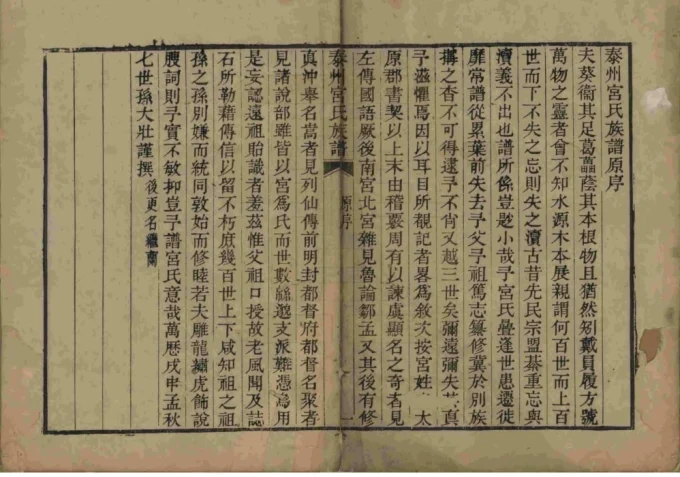 泰州宮氏族譜原序
夫葵衛其足葛藟蔭其本根物且猶然矧戴員履方號
萬物之靈者會不知水源木本展親謂何百世而上百
世而下不失之忘則失之瀆古昔先民宗盟綦重忘與
瀆義不出也譜所係豈尠小哉予宮氏疊逢世患遷徙
靡常譜從累葉前失去予父予祖篤志纂修冀於別族
搆之杳不可得逮予不肖又越三世矣彌遠彌失其真
予滋懼焉因以耳目所覩記者畧為敘次按宮姓 太
原郡書契以上末由稽覈周有以諫虞顯名之奇者見
左傳國語厥後南宮北宮雜見魯論鄒孟又其後有修
泰州宮氏族譜 原序 一
真沖舉名嵩者見列仙傳前明封都督府都督名聚者
見諸說部雖皆以宮為氏而世數緜邈支派難憑烏用
是妄認遠祖貽識者羞茲惟父祖口授故老風聞及誌
石所勒藉傳信以留不朽庶幾百世上下咸知祖之祖
孫之孫別嫌而統同敦始而修睦若夫雕龍繡虎飾說
腴詞則予實不敏抑豈予譜宮氏意哉萬曆戊申孟秋
七世孫大壯謹撰 後更名繼蘭